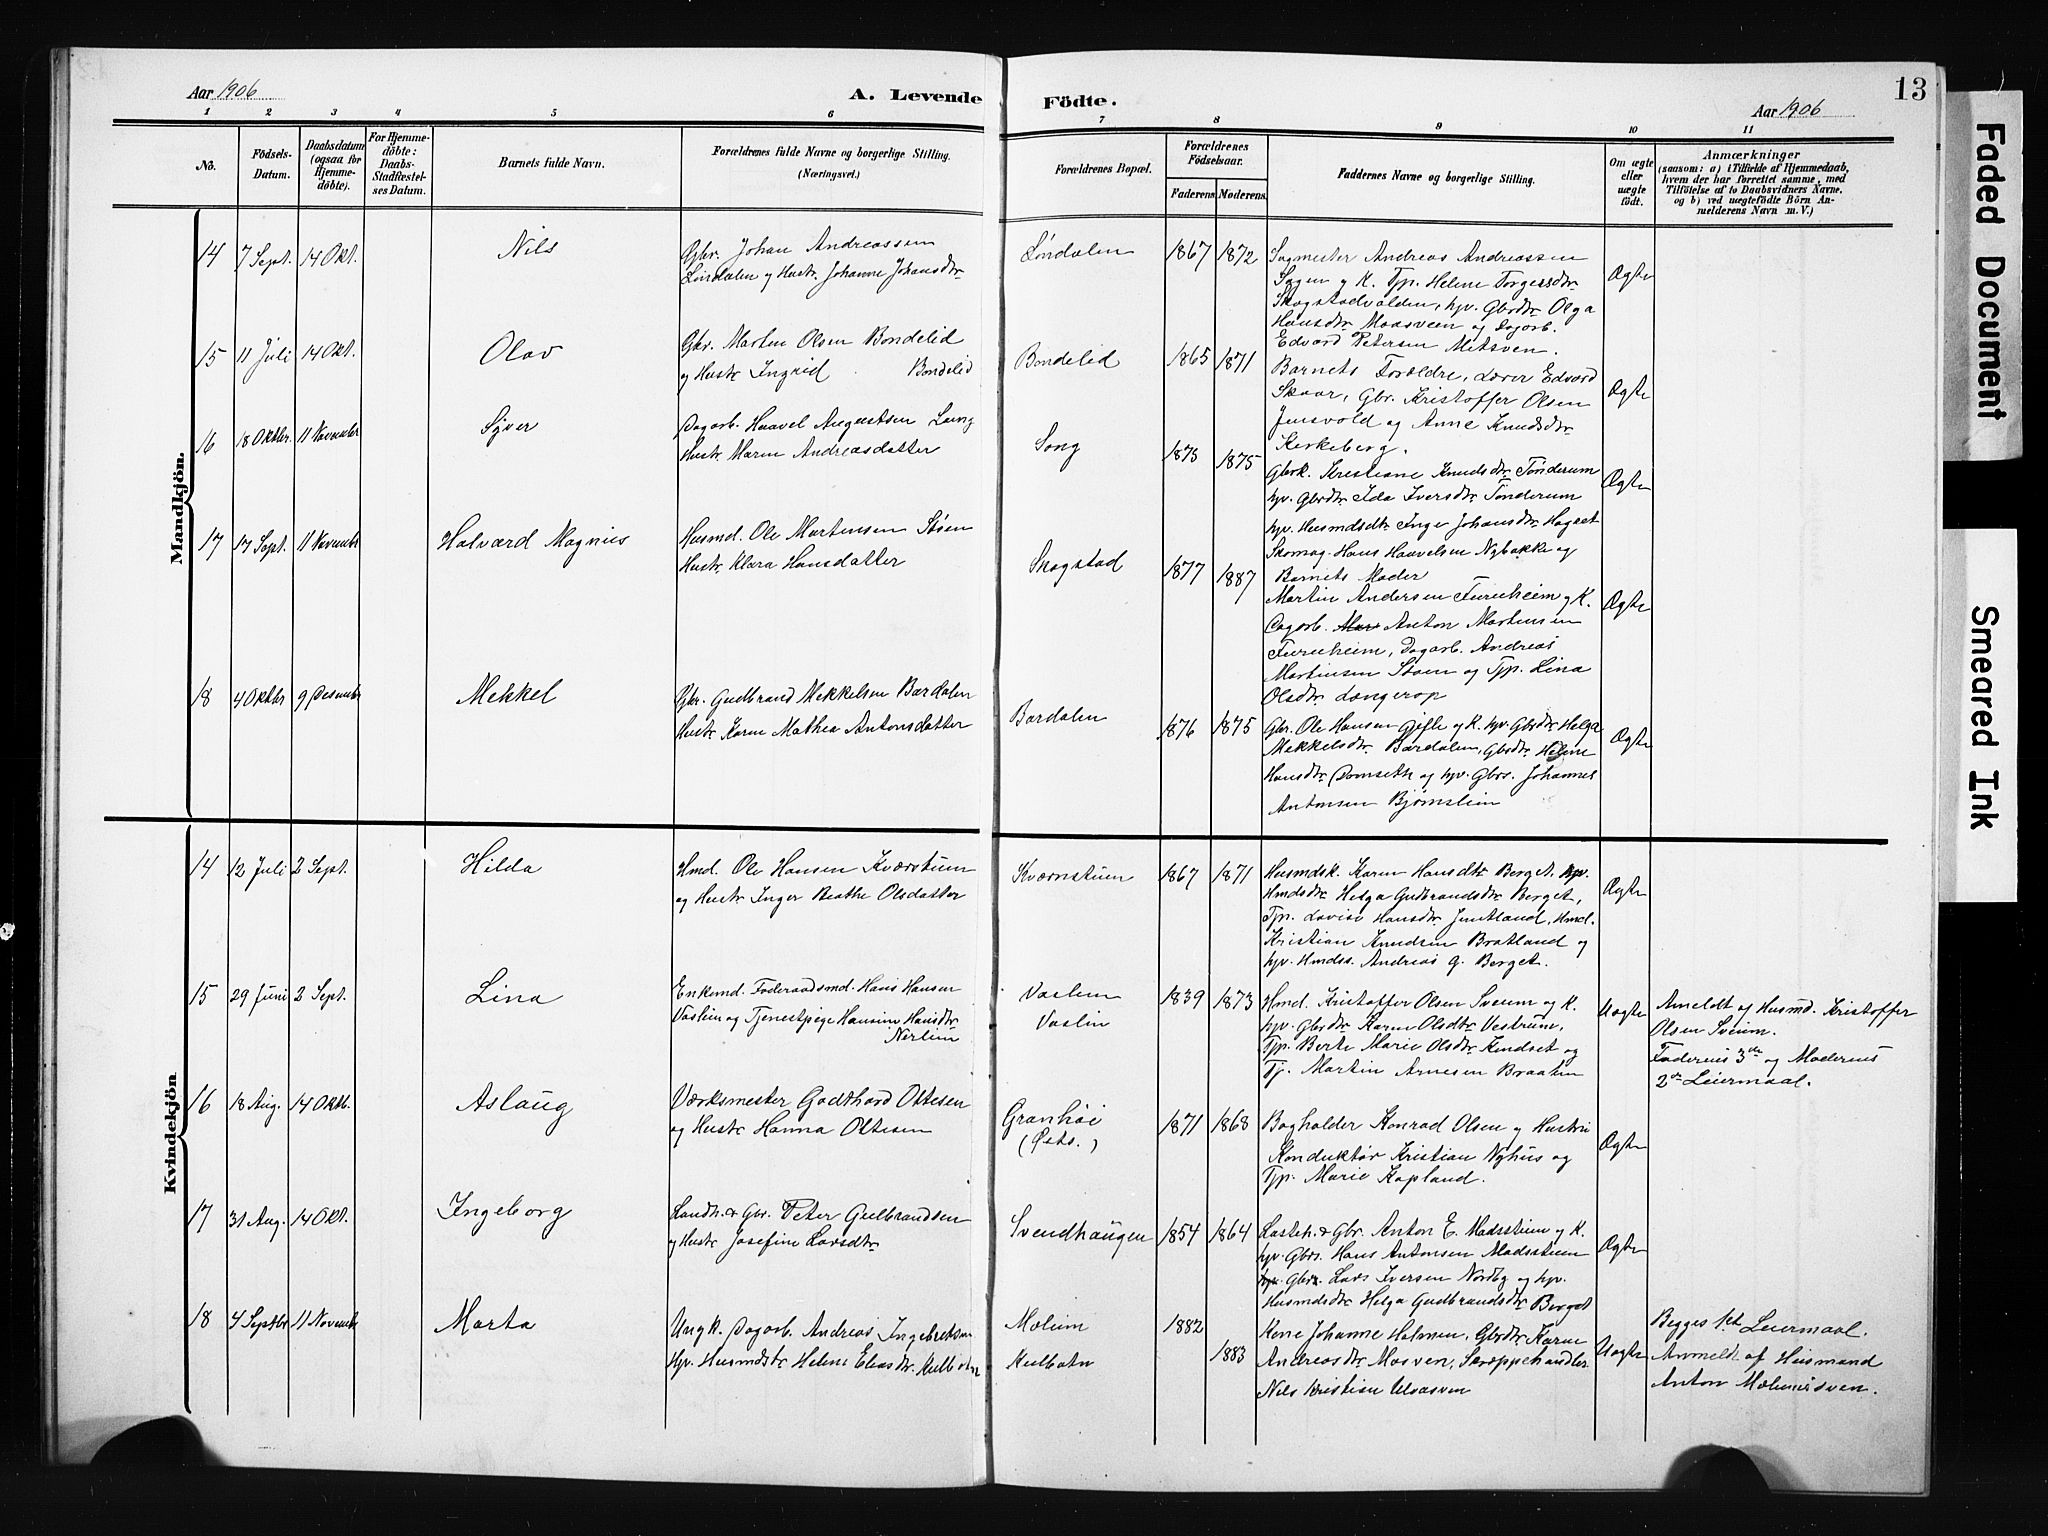 Aar 1906
A. Levende Födte.
Aar 1906
13
1 2 3 4 5 6 7 8 9 10 11
No.
Födsels-Datum.
Daabsdatum (ogsaa for Hjemme-döbte).
For Hjemme-döbte: Daabs-Stadfæstel-ses Datum.
Barnets fulde Navn.
Forældrenes fulde Navne og borgerlige Stilling.
(Næringsvei.)
Forældrenes Bopæl.
Forældrenes Födselsaar.
Faderens
Moderens.
Faddernes Navne og borgerlige Stilling.
Om ægte eller uægte födt.
Anmærkninger
(saasom: a) i Tilfælde af Hjemmedaab,
hvem der har forrettet samme, med
Tilföielse af to Daabsvidners Navne,
og b) ved uægtefödte Börn An-
melderens Navn m. V.)
Mandkjön.
14 7 Sept. 14 Okt. Nils
Gbr. Johan Andreassen
Løndalen og Hustr. Johanne Johansdtr
Løndalen 1867 1872
Sagmester Andreas Andreassen
Sagen og K. Tjp. Helene Torgersdtr
Skogstadvolden, hjv. Gbrdtr Olga
Hansdtr Maasveen og Dagarb.
Edvard Petersen Metsven.
Ægte
15 11 Juli 14 Okt. Olav
Gbr. Martin Olsen Bondelid
og Hustr Ingrid Bondelid
Bondelid 1865 1871
Barnets Forældre, Lærer Edvard
Skaar, Gbr. Kristoffer Olsen
Jensvold og Anne Knudsdtr
Kirkeberg.
Ægte
16 18 Oktbr. 11 Novembr Syver
Dagarb. Haavel Augustsen Long
Hustr Maren Andreasdatter
Song 1873 1875
Gbrk. Kristiane Knudsdtr Tønderum
hjv. Gbrdtr Ida Iversdtr Tønderum
hjv. Husmdsdtr Inge Johansdtr Hagset
Skomag. Hans Haavelsen Nybakke og
Barnets Moder
Ægte
17 17 Sept. 11 Novembr Halvard Magnus
Husmd. Ole Martensen Støen
Hustr. Klara Hansdatter
Skogstad 1877 1887
Martin Andersen Furuheim og K.
Dagarb. Anton Martinsen
Furuheim, Dagarb. Andreas
Martinsen Støen og Tjp. Lina
Olsdtr Longerop
Ægte
18 4 Oktbr 9 Desembr Mekkel
Gbr. Gudbrand Mekkelsen Bardalen
Hustr Karen Mathea Antonsdatter
Bardalen 1876 1875
Gbr. Ole Hansen Gifle og K. hjv. Gbrdtr Helga
Mekkelsdtr Bardalen, Gbrdtr Heline
Hansdtr Domseth og hjv. Gbrs. Johannes
Antonsen Bjørnslien
Ægte
Kvindekjön
14 12 Juli 2 Sept. Hilda
Hmd. Ole Hansen Kværstuen
og Hustr Inger Beathe Olsdatter
Kværnstuen 1867 1871
Husmdsk. Karen Hansdtr Berget, hjv.
Hmdsdtr Helga Gudbrandsdtr Berget,
Tjp. Lovise Hansdtr Juntland, Hmd.
Kristian Knudsen Bratland og
hjv. Hmdss. Andreas G. Berget.
Ægte
15 29 Juni 2 Sept. Lina
Enkemd. Føderaadsmd. Hans Hansen
Vaslien og Tjenestpige Hansine Hansdtr
Nerlien
Vaslien
Vaslien
1839 1873
Hmd. Kristoffer Olsen Sveum og K.
hjv. Gbrdtr Karen Olsdtr Vestrum,
Tjp. Berte Marie Olsdtr Kindset og
Tj. Martin Arnesen Braaten
Uægte
Anmeldt af Husmd. Kristoffer
Olsen Sveum.
Faderens 3de og Moderens
2de Leiermaal.
16 18 Aug. 14 Oktb. Aslaug
Værksmester Godthard Ottesen
og Hustr Hanna Ottesen
Granhøi
(Øets.)
1871 1868
Bogholder Konrad Olsen og Hustru
Konduktør Kristian Nyhus og
Tjp. Marie Kapland.
Ægte
17 31 Aug. 14 Okt. Ingeborg
Landh. & Gbr. Peter Gulbrandsen
og Hustr Josefine Larsdtr
Svendhaugen 1854 1864
Lasteh. & Gbr. Anton E. Madsstuen og K.
hjv. Gbrs. Hans Antonsen Madsstuen
Gbrs. Lars Iversen Nordby og hjv.
Husmdsdtr Helga Gudbrandsdtr Berget
Ægte
18 4 Septbr 11 Novembr Marta
Ungk. Dagarb. Andreas Ingebretsen
Hjv. Husmdsdtr Helene Eliasdtr Kulbotn
Mælum
Kulbotn
1882
1883
Kone Johanne Holmen, Gbrdtr Karen
Andreasdtr Mosven, Skræppehandler
Nils Kristian Ulvasven
Uægte
Begges 1ste Leiermaal.
Anmeldt af Husmand
Anton Mælumsven.
Faded Document
Smeared Ink